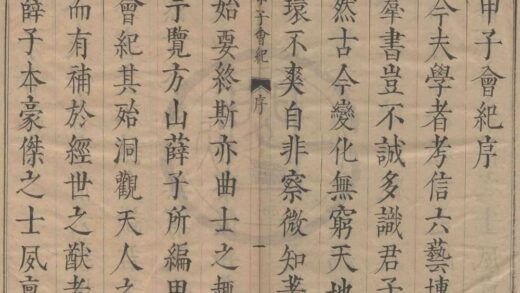 甲子會紀序
今夫學者考信六藝博
羣書豈不誠多識君子
然古今變化無窮天地
環不爽自非察微知著
子會紀
序
一
始要終斯亦曲士之趣
予覽方山薛子所編甲
會紀其殆洞觀天人之
而有補於經世之猷者
薛子本豪傑之士夙稟